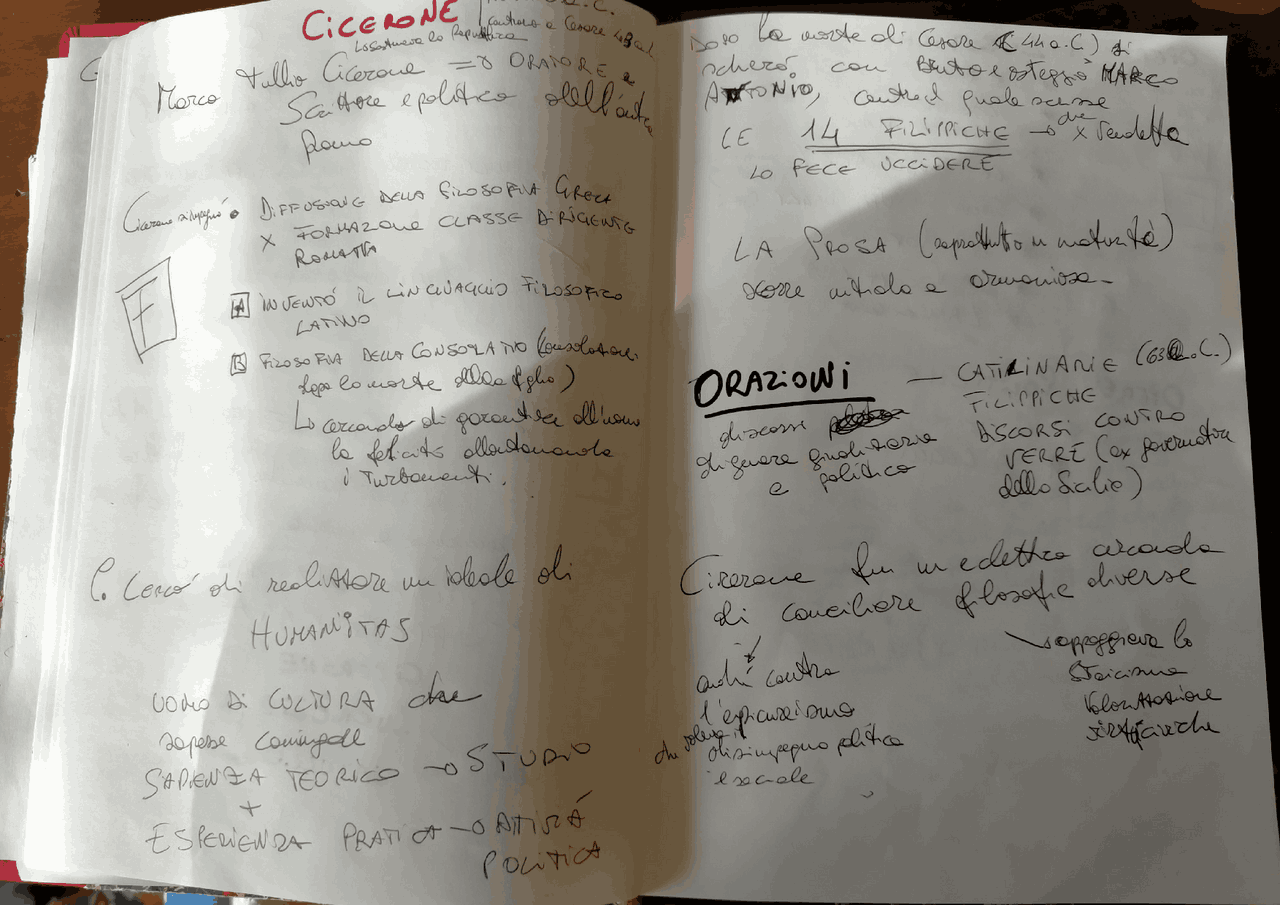 CICERONE
contro e Cesare
Marco Tullio Cicerone => ORATORE e
Scrittore e politico dell'antica
Roma
Cicerone si impegnò • DIFFUSIONE DELLA FILOSOFIA GRECA
X FORMAZIONE CLASSE DIRIGENTE
ROMANA
F
A INVENTÓ IL LINGUAGGIO FILOSOFICO
LATINO
B FILOSOFIA DELLA CONSOLATIO
dopo la morte della figlia)
↳ cercando di garantire all'uomo
la felicità allontanando
i Turbamenti.
C. Cercò di realizzare un ideale di
HUMANITAS
UOMO DI CULTURA che
sapesse
SAPIENZA TEORICO → STUDIO
+
ESPERIENZA PRATICA → ATIVITÁ
POLITICA
Dopo la morte di Cesare (44 a.C.) si
schierò con Bruto e osteggiò MARCO
ANTONIO, contro il quale scrisse
LE 14 FILIPPICHE → che x vendetta
LO FECE UCCIDERE
LA PROSA (soprattutto in maturità)
scorre nitida e armoniosa -
ORAZIONI — CATILINARIE (63 a.C.)
FILIPPICHE
discorsi
di genere giudiziario
e politico
DISCORSI CONTRO
VERRE (ex governatore
della Sicilia)
Cicerone fu un eclettico cercando
di conciliare filosofie diverse
andò contro
l'epicureismo
che voleva il
disimpegno politico
e sociale
↘ appoggiava lo
Stoicismo
Valorizzazione
virtù civiche